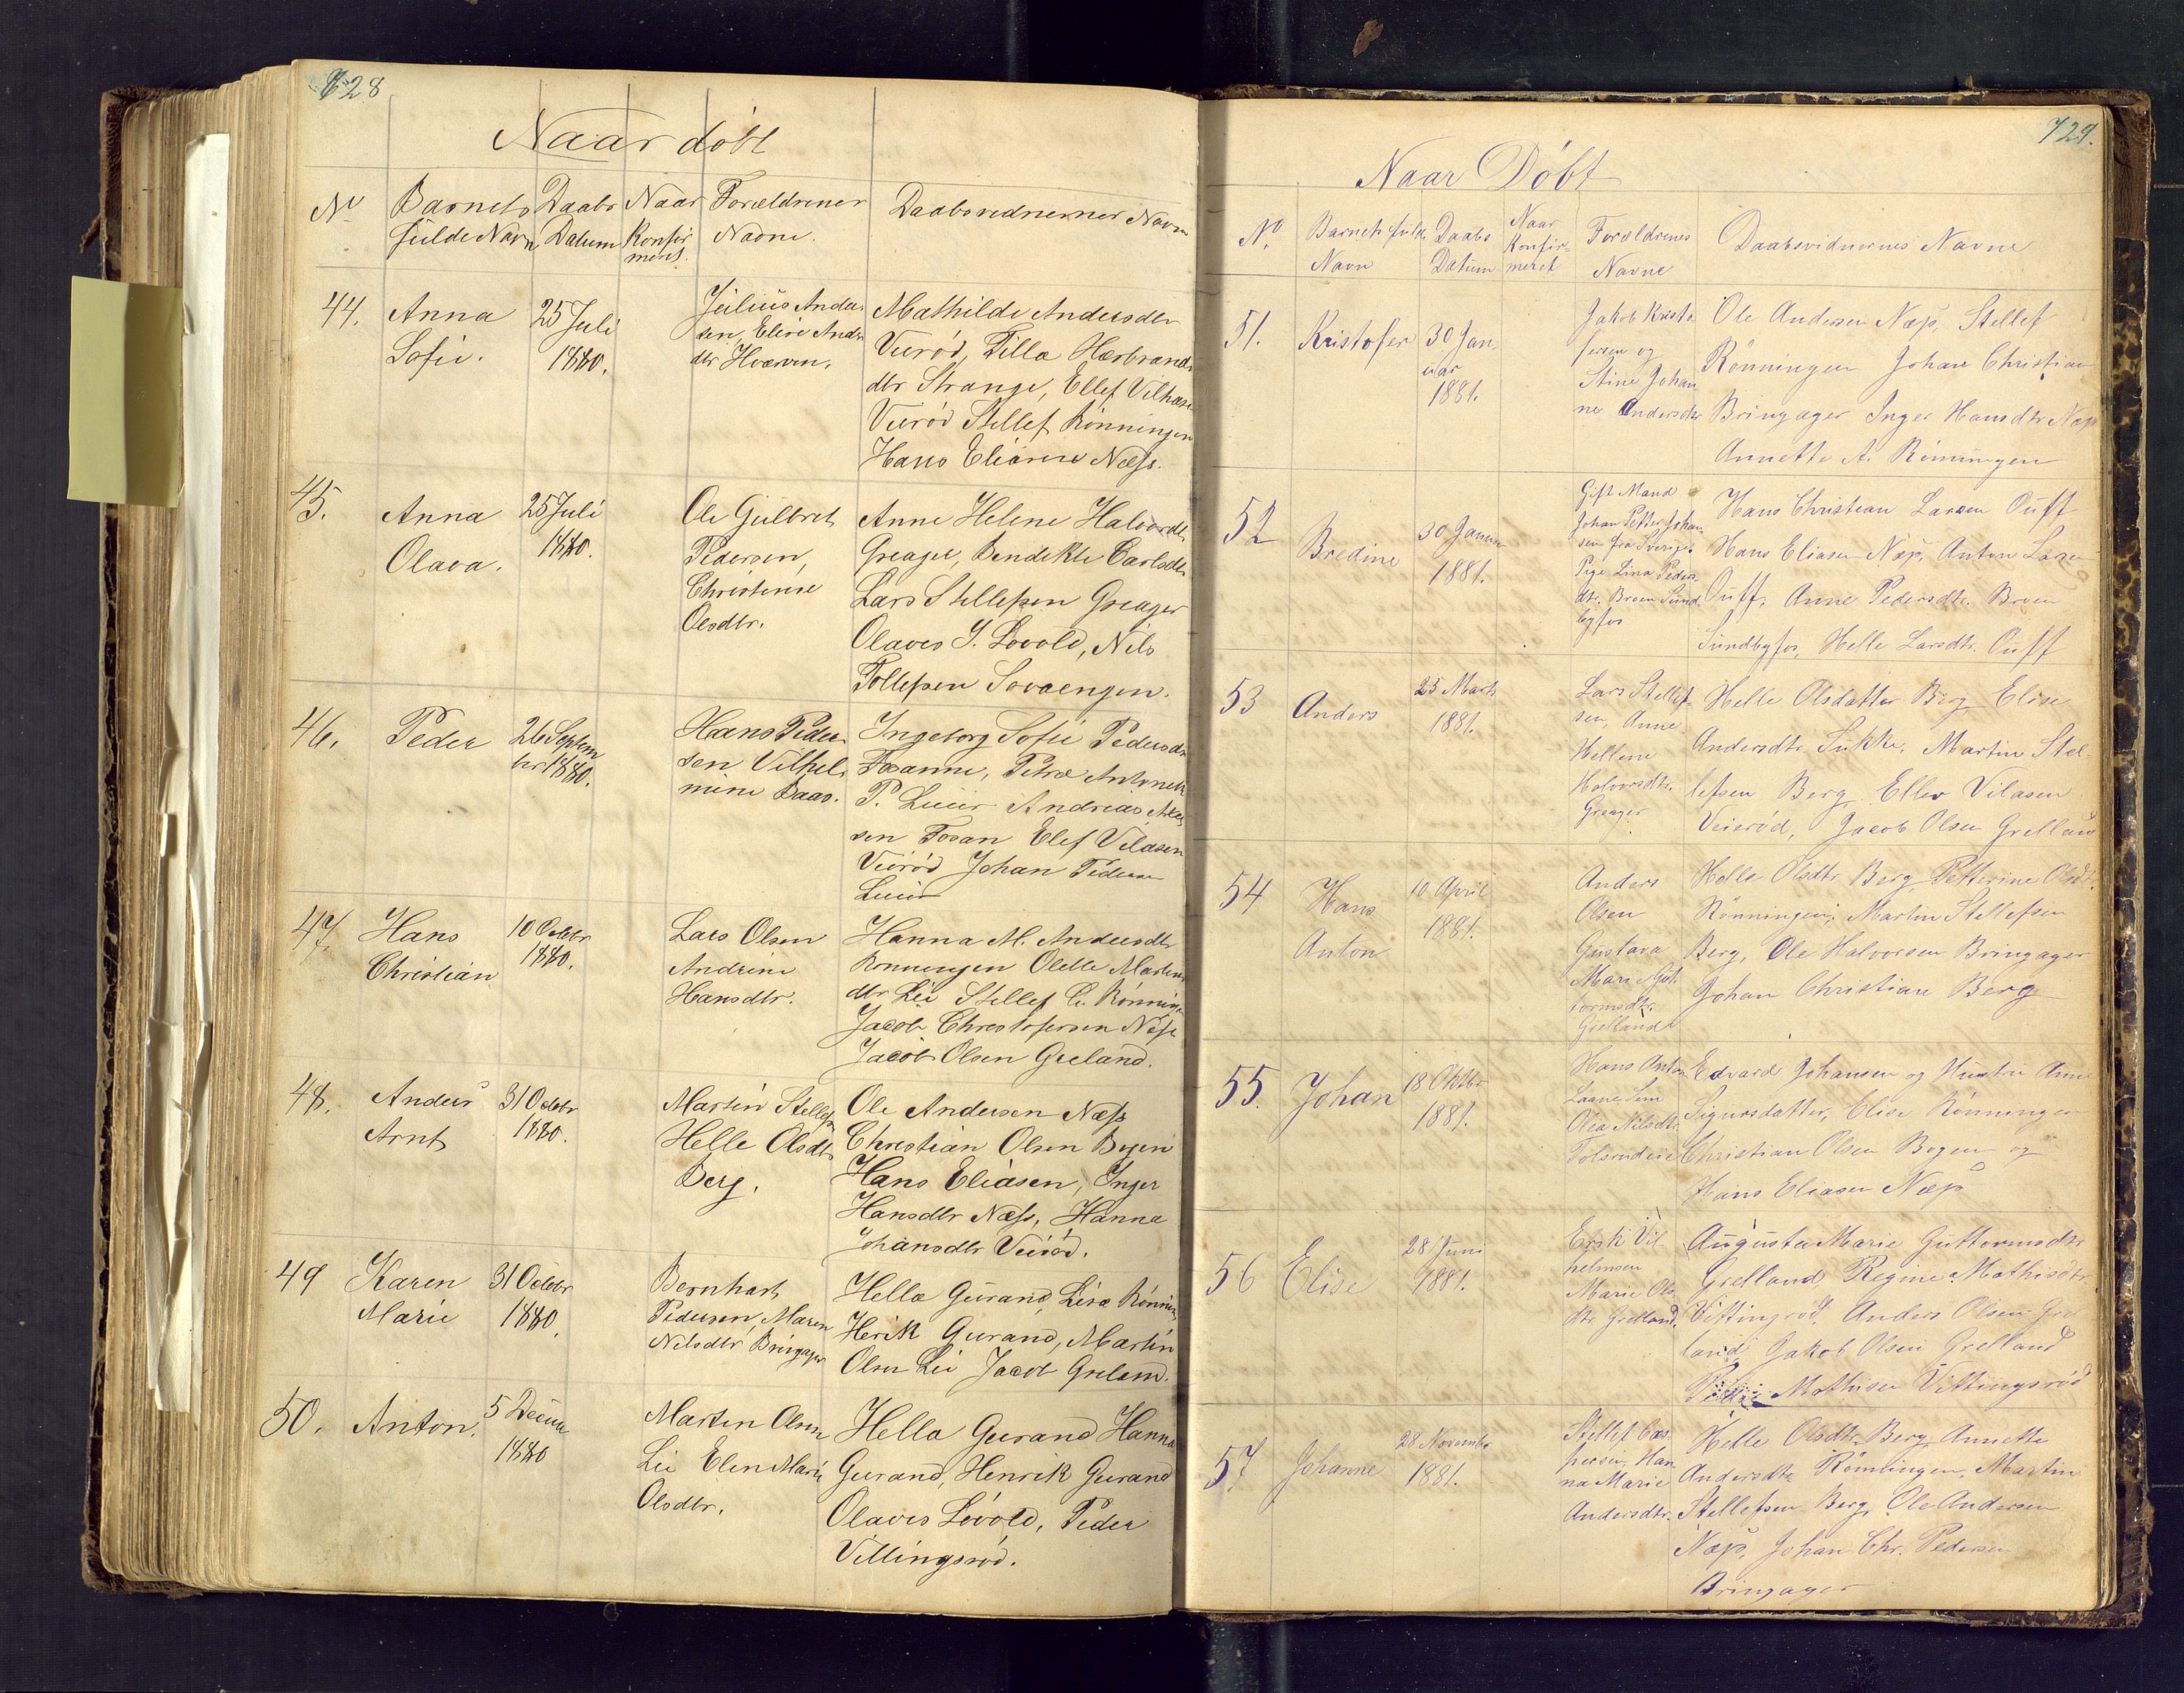 728
Naar döbt
No
Barnets
fulde Navn
Daabs
Datum
Naar
Konfir
meret.
Forældrenes
Navne.
Daabsvidnernes Navne
44.
Anna
Sofie.
25 Juli
1880.
Julius Ander
sen, Elise Andr
dtr Hvarven.
Mathilde Andersdtr
Veirød, Tilla Herbrands
dtr Strange, Ellef Vilhasen
Veirød Stellef Rönningen
Hans Eliasen Næss.
45.
Anna
Olava.
25 Juli
1880.
Ole Gulbret
Pedersen,
Christense
Olsdtr.
Anne Helene Halvordtr
Greager, Bendikte Carlsdtr
Lars Stellefsen Greager
Olaves J. Lövold, Nils
Tollefsen Sovaengen.
46.
Peder
26 Septem
ber 1880.
Hans Peder
sen Vilhel
mine Baas.
Ingeborg Sofie Pedersdtr
Fosanne, Petra Antonette
P. Lueir Andreas
sen Fosan Elef Vilasen
Veiröd Johan Pedersen
Lueir
47.
Hans
Christian
10 Octobr
1880.
Lars Olsen
Andrine
Hansdtr.
Hanna M. Andersdtr
Ronningen Olette Martins
dtr Lie Stellef C. Rönningen
Jacob Christofersen Næss
Jacob Olsen Greland.
48.
Anders
Arnt
31 Octobr
1880.
Martin Stellefs
Helle Olsdtr
Berg.
Ole Andersen Næss
Christian Olsen Bogen
Hans Eliasen, Inger
Hansdtr Næss, Hanna
Johansdtr Veiröd.
49
Karen
Marie
31 Octobr
1880.
Bernhart
Pedersen, Maren
Nilsdtr Bringager
Hella Gurand, Lisa Rönnin
Herik Gurand, Martin
Olsen Lie Jacob Greland.
50.
Anton.
5 Decem
1880
Marten Olsen
Lie Elen Marie
Olsdtr.
Hella Gurand Hanna
Gurand, Henrik Gurand
Olaves Lövold, Peder
Vittingsröd.
729.
Naar Döbt
No.
Barnets fulde
Navn
Daabs
Datum
Naar
Konfir-
meret
Forældrenes
Navne
Daabsvidnernes Navne
51.
Kristofer
30 Jan
uar
1881.
Jakob Kristo
fersen og
Stine Johan
ne Andersdtr
Ole Andersen Næss, Stellef
Rönningen Johan Christian
Bringager Inger Hansdtr Næss
Annette A. Rönningen
52
Bredine
30 Januar
1881.
Gift Mand
Johan Petter Johan
sen fra Sverige.
Pige Lina Peders
dtr. Broen Sund
byfos
Hans Christian Larsen Ouff
Hans Eliasen Næss, Anton Larsen
Ouff, Anne Pedersdtr. Broen
Sundbyfos, Helle Larsdtr. Ouff
53
Anders
25 Marts
1881.
Lars Stellef-
sen, Anne
Hellene
Halvorsdtr.
Greager
Helle Olsdatter Berg Elise
Andersdtr. Sukke, Martin Stel-
lefsen Berg Ellev Vilasen
Veierød, Jacob Olsen Grelland
54
Hans
Anton
10 April
1881.
Anders
Olsen
Gustava
Marie Gut
tormsdtr.
Grelland
Helle Olsdtr Berg Petterine Olsdtr.
Rönningen, Martin Stellefsen
Berg, Ole Halvorsen Bringager
Johan Christian Berg
55.
Johan
18 Oktbr
1881.
Hans Anton
Laane Sem
Olea Nilsdtr
Tolsrudeie
Edvard Johansen og Hustru Anne
Sigursdatter, Elise Rönningen
Christian Olsen Bogen og
Hans Eliasen Næss
56
Elise
28 Juni
1881.
Erik Vil
helmsen
Marie Ols
dtr Grelland.
Augusta Marie Guttormsdtr
Grelland, Regine Mathisdtr
Vittingröd, Anders Olsen Gre
land Jakob Olsen Grelland
Mathisen Vittingsröd
57.
Johanne
28 Novembr
1881.
Stellef Cas
persen, Han
na Marie
Andersdtr.
Helle Olsdtr. Berg Annette
Andersdtr Römlingen, Martin
Stellefsen Berg, Ole Andersen
Næss, Johan Chr. Pedersen
Bringager